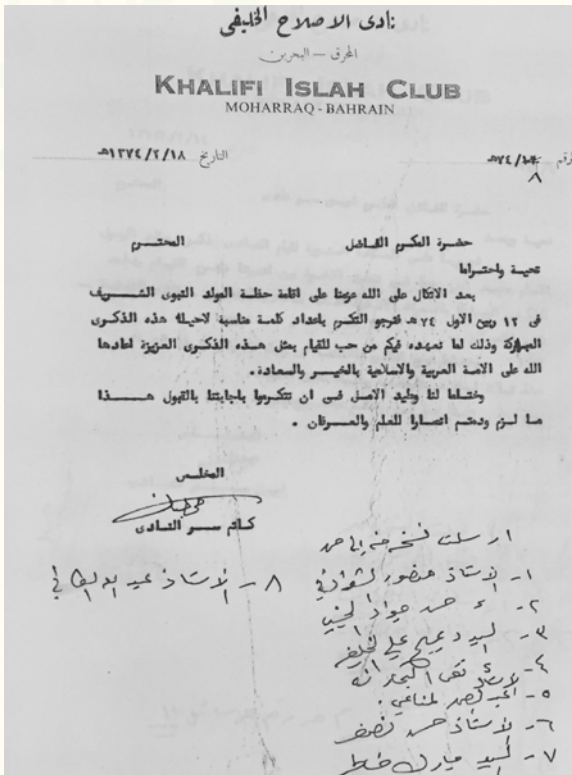 نادى الاصلاح الخليفى
المحرق – البحرين
KHALIFI ISLAH CLUB
MOHARRAQ - BAHRAIN
رقم ٧٤/هـ
٨
التاريخ ١٣٧٤/٢/١٨هـ
حضرة المكرم الفاضل المحترم
تحية واحتراما
بعد الاتكال على الله عزمنا على اقامة حفلة المولد النبوى الشريف
فى ١٢ ربيع الاول ٧٤هـ فنرجو التكرم باعداد كلمة مناسبة لاحياء هذه الذكرى
المباركة وذلك لما نعهده فيكم من حب للقيام بمثل هذه الذكرى العزيزة اعادها
الله على الامة العربية والاسلامية بالخير والسعادة .
وختاما لنا وطيد الامل فى ان تتكرموا باجابتنا بالقبول هذا
ما لزم ودمتم انصارا للعلم والعرفان .
المخلص
كاتم سر النادى
ارسلت نسخة منه الى
١- الاستاذ منصور
٢- حسن جواد الجشي
٣- السيد علي خليفه
٤- الاستاذ تقي البحارنه
٥-
٦- الاستاذ حسن
٧- السيد مبارك خاطر
٨- الاستاذ عبد